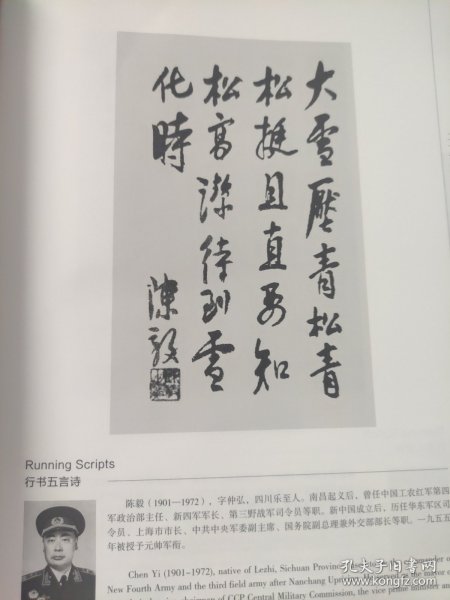 大雪壓青松青
松挺且直要知
松高潔待到雪
化時
陳毅
Running Scripts
行书五言诗
陈毅（1901—1972），字仲弘，四川乐至人。南昌起义后，曾任中国工农红军第四
军政治部主任、新四军军长、第三野战军司令员等职。新中国成立后，历任华东军区司
令员、上海市市长、中共中央军委副主席、国务院副总理兼外交部部长等职。一九五五
年被授予元帅军衔。
Chen Yi (1901-1972), native of Lezhi, Sichuan of
New Fourth Army and the third field army after Nanchang of
of CCP Central Military Commission, the vice minister and
孔夫子旧书网